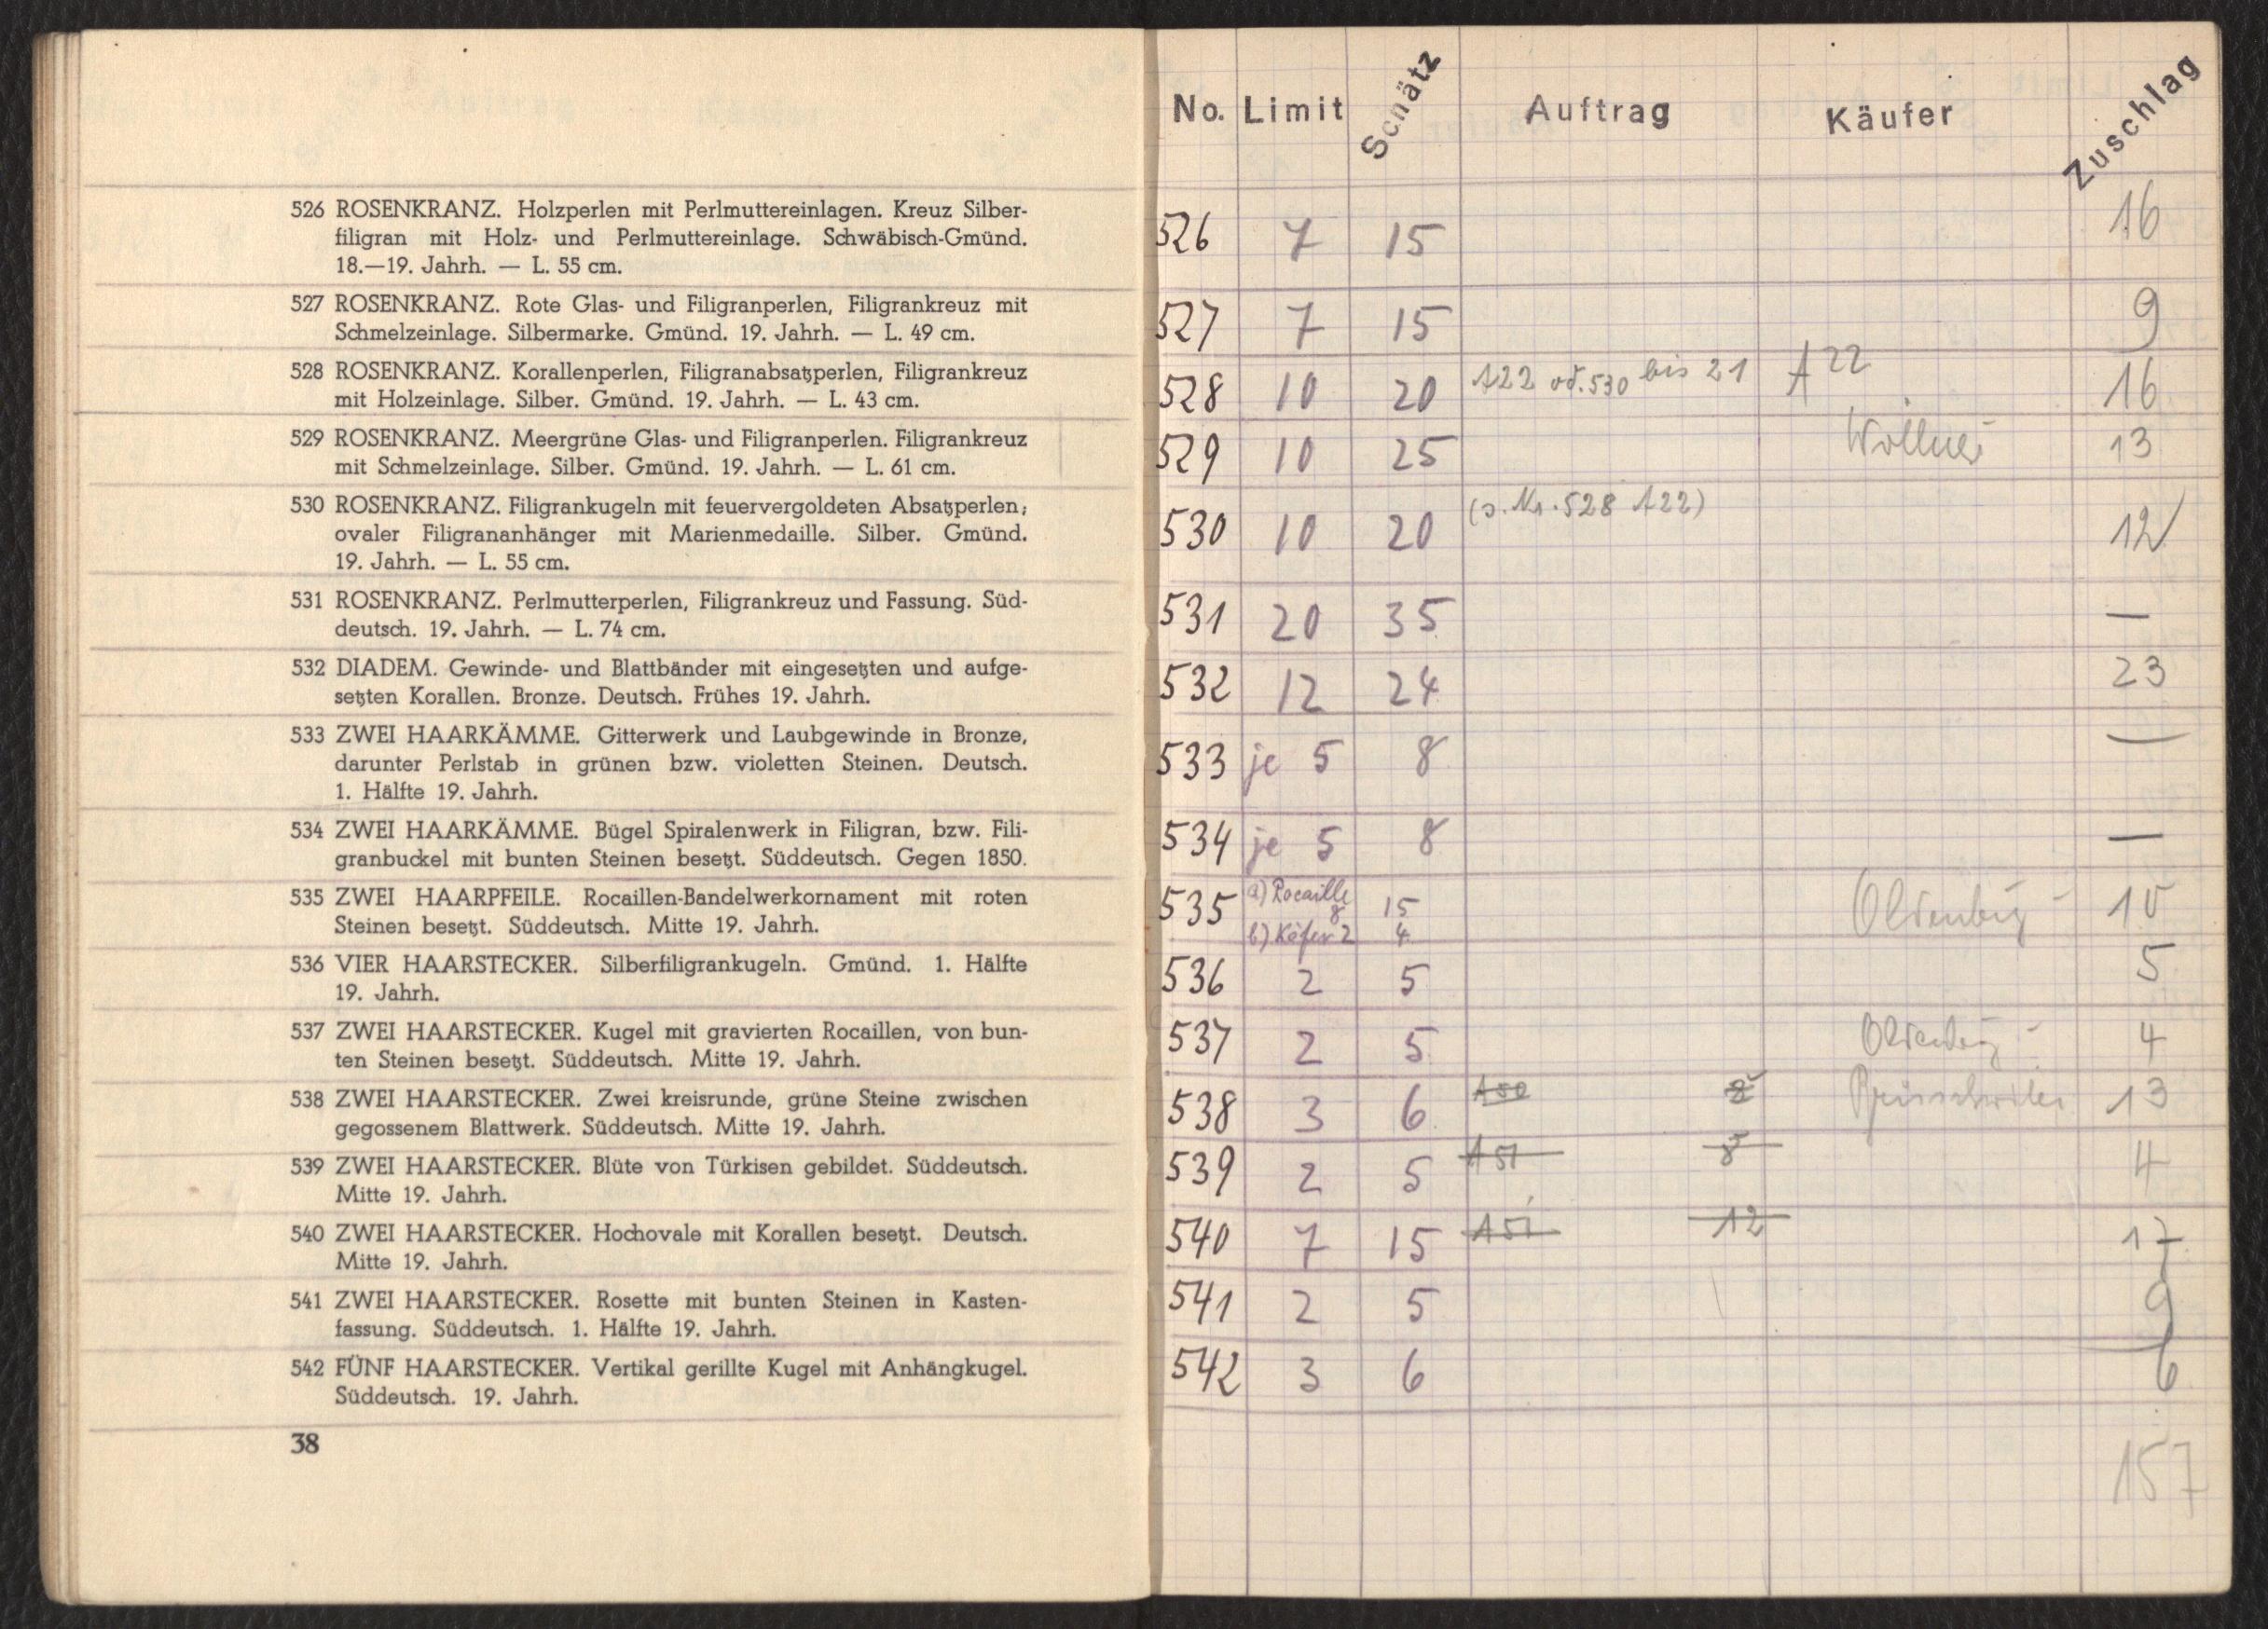 526 ROSENKRANZ. Holzperlen mit Perlmuttereinlagen. Kreuz Silber-
filigran mit Holz- und Perlmuttereinlage. Schwäbisch-Gmünd.
18.—19. Jahrh. — L. 55 cm.
527 ROSENKRANZ. Rote Glas- und Filigranperlen, Filigrankreuz mit
Schmelzeinlage. Silbermarke. Gmünd. 19. Jahrh. — L. 49 cm.
528 ROSENKRANZ. Korallenperlen, Filigranabsatzperlen, Filigrankreuz
mit Holzeinlage. Silber. Gmünd. 19. Jahrh. — L. 43 cm.
529 ROSENKRANZ. Meergrüne Glas- und Filigranperlen. Filigrankreuz
mit Schmelzeinlage. Silber. Gmünd. 19. Jahrh. — L. 61 cm.
530 ROSENKRANZ. Filigrankugeln mit feuervergoldeten Absatzperlen;
ovaler Filigrananhänger mit Marienmedaille. Silber. Gmünd.
19. Jahrh. — L. 55 cm.
531 ROSENKRANZ. Perlmutterperlen, Filigrankreuz und Fassung. Süd-
deutsch. 19. Jahrh. — L. 74 cm.
532 DIADEM. Gewinde- und Blattbänder mit eingesetzten und aufge-
setzten Korallen. Bronze. Deutsch. Frühes 19. Jahrh.
533 ZWEI HAARKÄMME. Gitterwerk und Laubgewinde in Bronze,
darunter Perlstab in grünen bzw. violetten Steinen. Deutsch.
1. Hälfte 19. Jahrh.
534 ZWEI HAARKÄMME. Bügel Spiralenwerk in Filigran, bzw. Fili-
granbuckel mit bunten Steinen besetzt. Süddeutsch. Gegen 1850.
535 ZWEI HAARPFEILE. Rocaillen-Bandelwerkornament mit roten
Steinen besetzt. Süddeutsch. Mitte 19. Jahrh.
536 VIER HAARSTECKER. Silberfiligrankugeln. Gmünd. 1. Hälfte
19. Jahrh.
537 ZWEI HAARSTECKER. Kugel mit gravierten Rocaillen, von bun-
ten Steinen besetzt. Süddeutsch. Mitte 19. Jahrh.
538 ZWEI HAARSTECKER. Zwei kreisrunde, grüne Steine zwischen
gegossenem Blattwerk. Süddeutsch. Mitte 19. Jahrh.
539 ZWEI HAARSTECKER. Blüte von Türkisen gebildet. Süddeutsch.
Mitte 19. Jahrh.
540 ZWEI HAARSTECKER. Hochovale mit Korallen besetzt. Deutsch.
Mitte 19. Jahrh.
541 ZWEI HAARSTECKER. Rosette mit bunten Steinen in Kasten-
fassung. Süddeutsch. 1. Hälfte 19. Jahrh.
542 FÜNF HAARSTECKER. Vertikal gerillte Kugel mit Anhängkugel.
Süddeutsch. 19. Jahrh.
38
No. Limit Schätz Auftrag Käufer Zuschlag
526 7 15 16
527 7 15 9
528 10 20 A22 od. 530 bis 21 A22 16
529 10 25 13
530 10 20 (s. Nr. 528 A22) 12
531 20 35 —
532 12 24 23
533 je 5 8 —
534 je 5 8 —
535 a) Rocaille 8 15 Oldenburg 10
b) Käfer 2 4
536 2 5 5
537 2 5 Oldenburg 4
538 3 6 A50 13
539 2 5 A51 8 4
540 7 15 A51 12 17
541 2 5 9
542 3 6 6
157